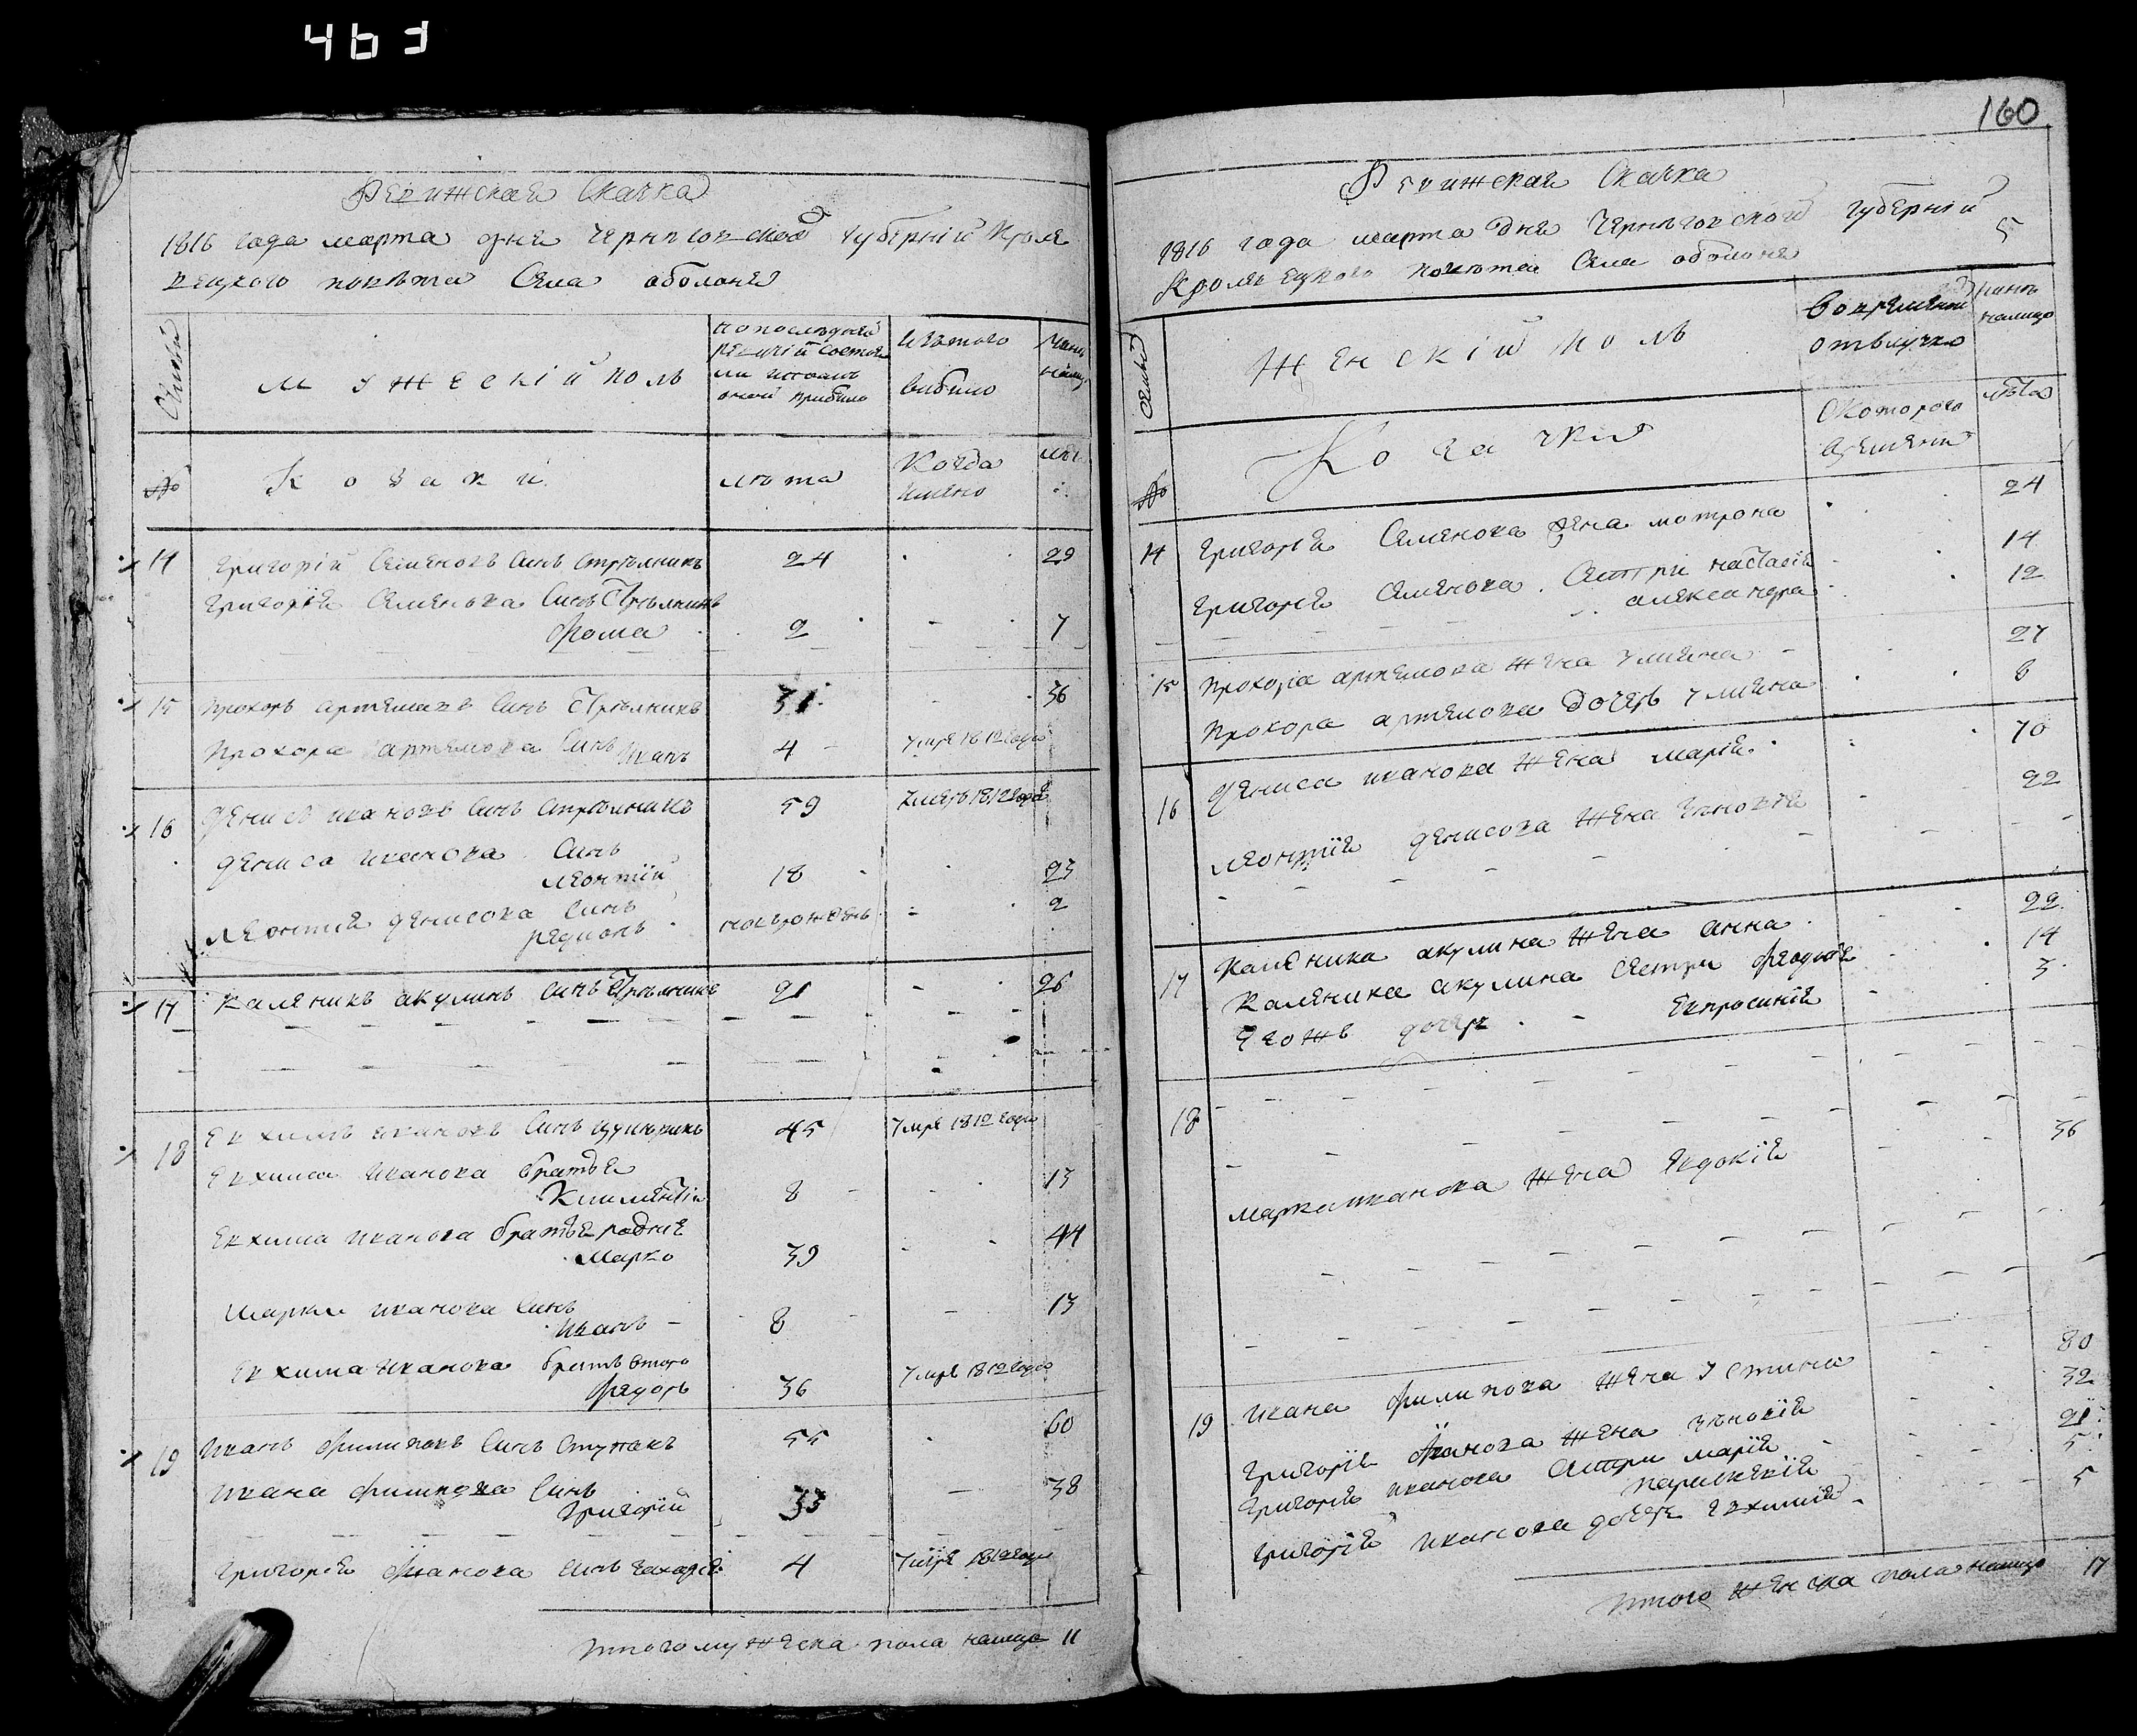 463
Ревижская Скачка
1816 года марта дня Черниговской губерній Кроле
вецкого повѣта Села оболоня
Семьи
мужескій полъ
по последней
ревизіи состоя
ли
оной прибыло
Изъ того
вибыло
налиц.
№
Козаки
лѣта
Когда
имено
лѣт.
14 Григорій Семеновъ Синъ Стрѣлникъ 24 29
Григорія Семенова Синъ Стрѣлникъ
Фома 2 7
15 Прохоръ артемовъ Синъ Стрѣлникъ 31 36
Прохора артемова Синъ Иванъ 4 Умре 1812 года
16 Денисъ ивановъ Синъ Стрѣлникъ 59 Умеръ 1812 года
Дениса иванова Синъ
леонтій 18 23
Леонтія денисова Синъ
редионъ новорожденъ 2
17 Каленикъ акулинъ Синъ Стрѣлникъ 21 26
18 Евхимъ ивановъ Синъ 45 Умре 1812 года
Евхима иванова братья
Климентій 8 13
Евхима иванова братья родние
Марко 39 44
Марка иванова Синъ
Иванъ 8 13
Евхима иванова братъ
Федоръ 36 Умре 1812 года
19 Иванъ филиповъ Синъ Ступакъ 55 60
Ивана филипова Синъ
Григорій 33 38
Григорія иванова Синъ захарія 4 Умре 1812 года
Итого мужеска пола налицо 11
160
Ревижская Скачка
1816 года марта дня Черниговской губерній
5
Кролевецкого повѣта Села оболоня
Семьи
Женскій полъ
Во временной
отлучке
налицо
№
Козачки
Скоторого
времени
лѣта
14 Григорія Семенова жена мотрона 24
Григорія Семенова Сестри настасія 14
александра 12
15 Прохора артемова жена улияна 27
Прохора артемова дочерь улияна 8
16 Дениса иванова жена марія 70
Леонтія денисова жена зѣновія 22
17 Каленика акулина жена анна 22
Каленика акулина Сестри феодосія 14
Егожъ дочерь Евпросинія 3
18
марка иванова жена Евдокія 36
19 Ивана филипова жена Устина 80
Григорія иванова жена зѣновія 32
Григорія иванова Сестри марія 21
5
Григорія иванова дочерь Евхимія 5
Итого женска пола налицо 17